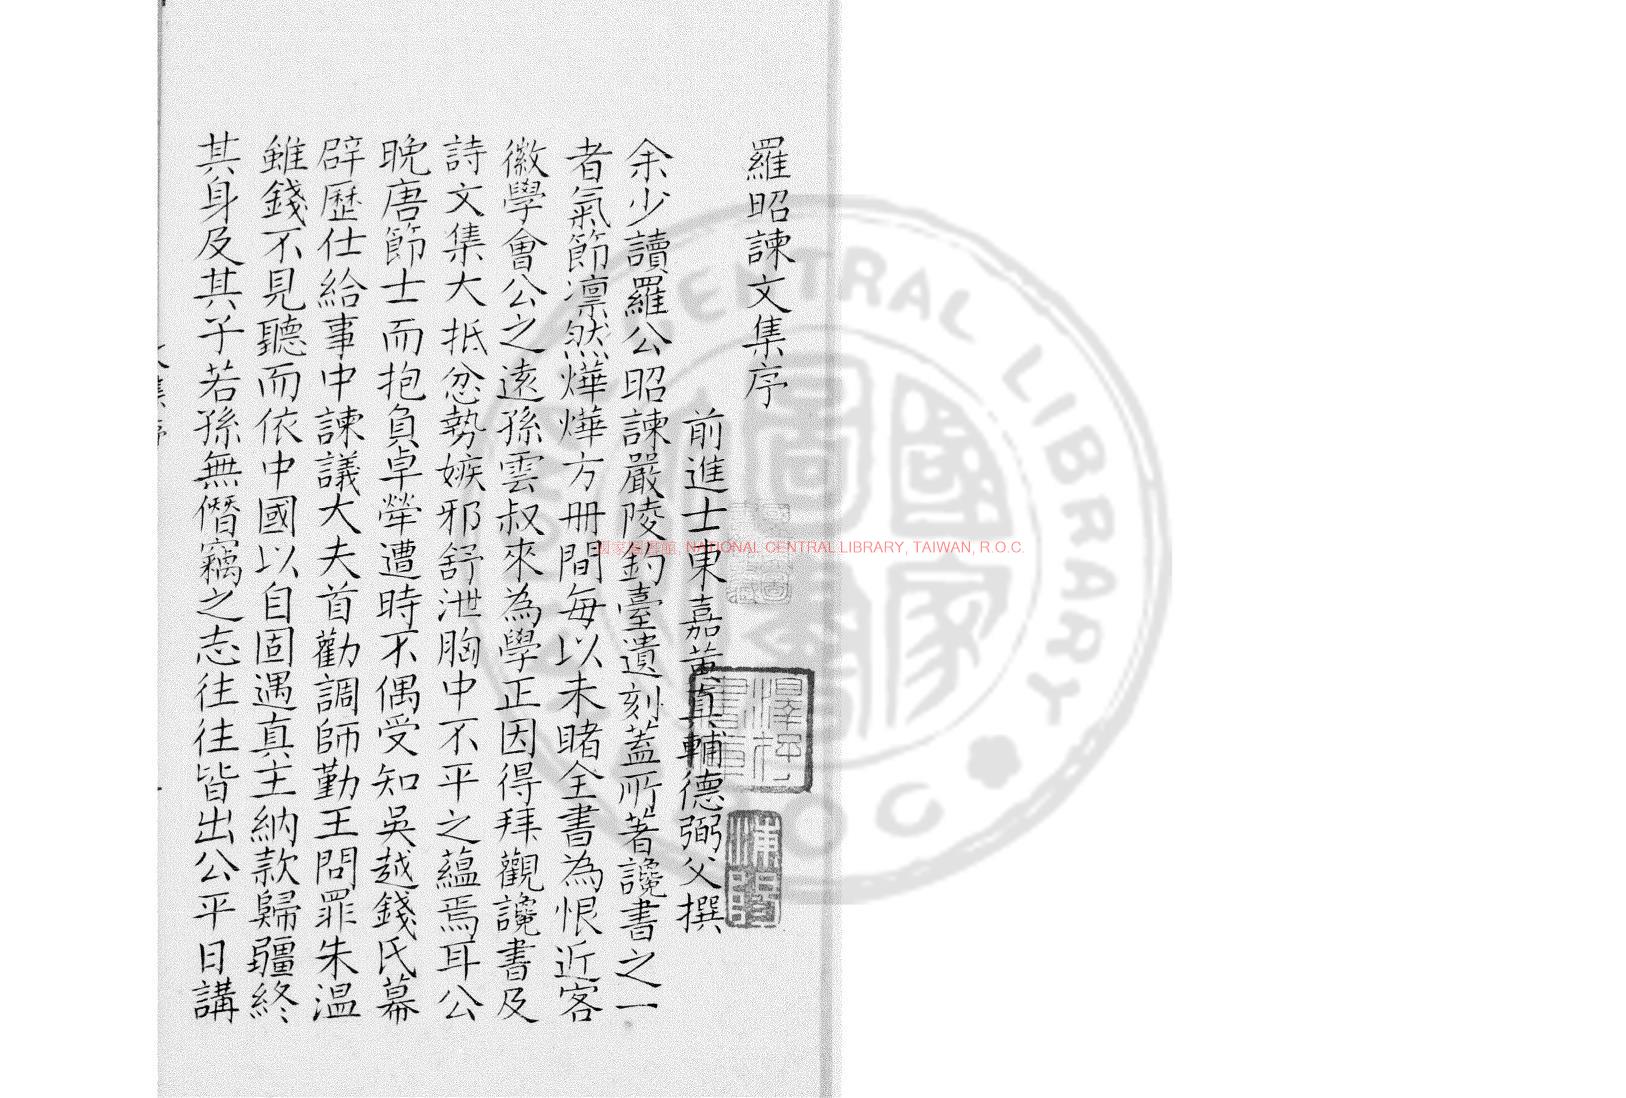 羅昭諫文集序
前進士東嘉黃真輔德弼父撰
余少讀羅公昭諫嚴陵釣臺遺刻蓋所著讒書之一
者氣節凛然燁燁方冊間每以未睹全書為恨近客
徽學會公之遠孫雲叔來為學正因得拜觀讒書及
詩文集大抵忿勢嫉邪舒泄胸中不平之蘊焉耳公
晚唐節士而抱負卓犖遭時不偶受知吳越錢氏幕
辟歷仕給事中諫議大夫首勸調師勤王問罪朱溫
雖錢不見聽而依中國以自固遇真主納款歸疆終
其身及其子若孫無僭竊之志往往皆出公平日講
文集序
國家圖書館, NATIONAL CENTRAL LIBRARY, TAIWAN, R.O.C.
NATIONAL CENTRAL LIBRARY
R.O.C.
國家圖書館